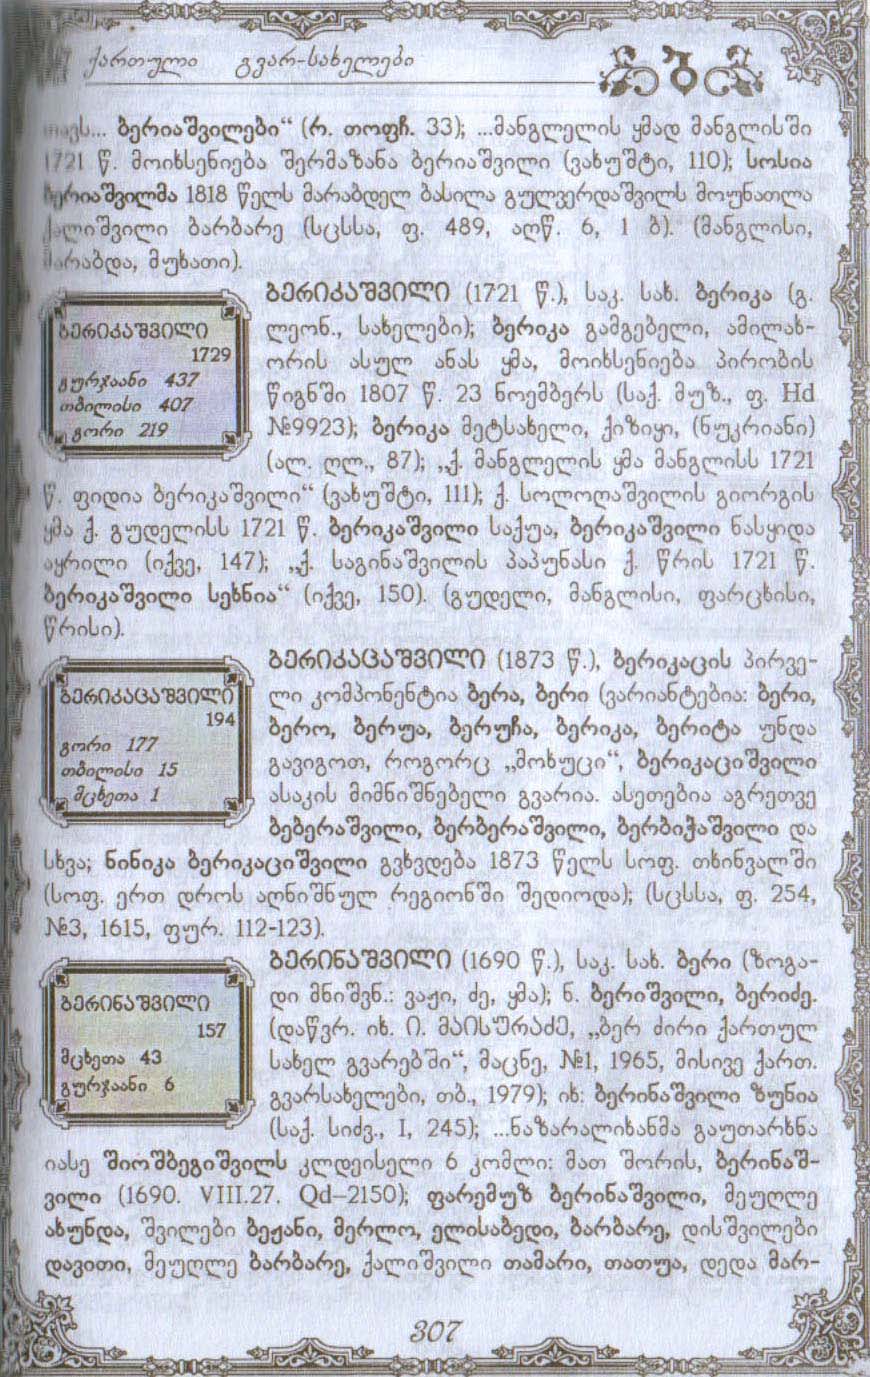 ქართული გვარ-სახელები
ბერიაშვილები“ (რ. თოფჩ. 33); ...მანგლელის ყმად მანგლისში
1721 წ. მოიხსენიება შერმაზანა ბერიაშვილი (ვახუშტი, 110); სოსია
ბერიაშვილმა 1818 წელს მარაბდელ ბასილა გულვერდაშვილს მოუნათლა
ქალიშვილი ბარბარე (სცსსა, ფ. 489, აღწ. 6, 1 ბ). (მანგლისი,
მარაბდა, მუხათი).
ბერიკაშვილი
1729
გურჯაანი 437
თბილისი 407
გორი 219
ბერიკაშვილი (1721 წ.), საკ. სახ. ბერიკა (გ.
ლეონ., სახელები); ბერიკა გამგებელი, ამილახ-
ორის ასულ ანას ყმა, მოიხსენიება პირობის
წიგნში 1807 წ. 23 ნოემბერს (საქ. მუზ., ფ. Hd
№9923); ბერიკა მეტსახელი, ქიზიყი, (ნუკრიანი)
(ალ. ღლ., 87); „ქ. მანგლელის ყმა მანგლისს 1721
წ. ფიდია ბერიკაშვილი“ (ვახუშტი, 111); ქ. სოლოღაშვილის გიორგის
ყმა ქ. გუდელისს 1721 წ. ბერიკაშვილი საქუა, ბერიკაშვილი ნასყიდა
აყრილი (იქვე, 147); „ქ. საგინაშვილის პაპუნასი ქ. წრის 1721 წ.
ბერიკაშვილი სეხნია“ (იქვე, 150). (გუდელი, მანგლისი, ფარცხისი,
წრისი).
ბერიკაცაშვილი
194
გორი 177
თბილისი 15
მცხეთა 1
ბერიკაცაშვილი (1873 წ.), ბერიკაცის პირვე-
ლი კომპონენტია ბერა, ბერი (ვარიანტებია: ბერი,
ბერო, ბერუა, ბერუჩა, ბერიკა, ბერიტა უნდა
გავიგოთ, როგორც „მოხუცი“, ბერიკაციშვილი
ასაკის მიმნიშნებელი გვარია. ასეთებია აგრეთვე
ბებერაშვილი, ბერბერაშვილი, ბერბიჭაშვილი და
სხვა; ნინიკა ბერიკაციშვილი გვხვდება 1873 წელს სოფ. თხინვალში
(სოფ. ერთ დროს აღნიშნულ რეგიონში შედიოდა); (სცსსა, ფ. 254,
№3, 1615, ფურ. 112-123).
ბერინაშვილი
157
მცხეთა 43
გურჯაანი 6
ბერინაშვილი (1690 წ.), საკ. სახ. ბერი (ზოგა-
დი მნიშვნ.: ვაჟი, ძე, ყმა); ნ. ბერიშვილი, ბერიძე.
(დაწვრ. იხ. ი. მაისურაძე, „ბერ ძირი ქართულ
სახელ გვარებში“, მაცნე, №1, 1965, მისივე ქართ.
გვარსახელები, თბ., 1979); იხ: ბერინაშვილი ზუნია
(საქ. სიძვ., I, 245); ...ნაზარალიხანმა გაუთარხნა
იასე შიოშბეგიშვილს კლდეისელი 6 კომლი: მათ შორის, ბერინაშ-
ვილი (1690. VIII.27. Qd–2150); ფარემუზ ბერინაშვილი, მეუღლე
ახუნდა, შვილები ბეჟანი, მერლო, ელისაბედი, ბარბარე, დისშვილები
დავითი, მეუღლე ბარბარე, ქალიშვილი თამარი, თათუა, დედა მარ-
307